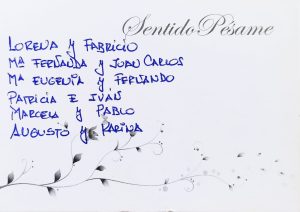 Sentido Pésame
LORENA y FABRICIO
Mª FERNANDA y JUAN CARLOS
Mª EUGENIA y FERNANDO
PATRICIA E IVÁN
MARCELA y PABLO
AUGUSTO y KARINA